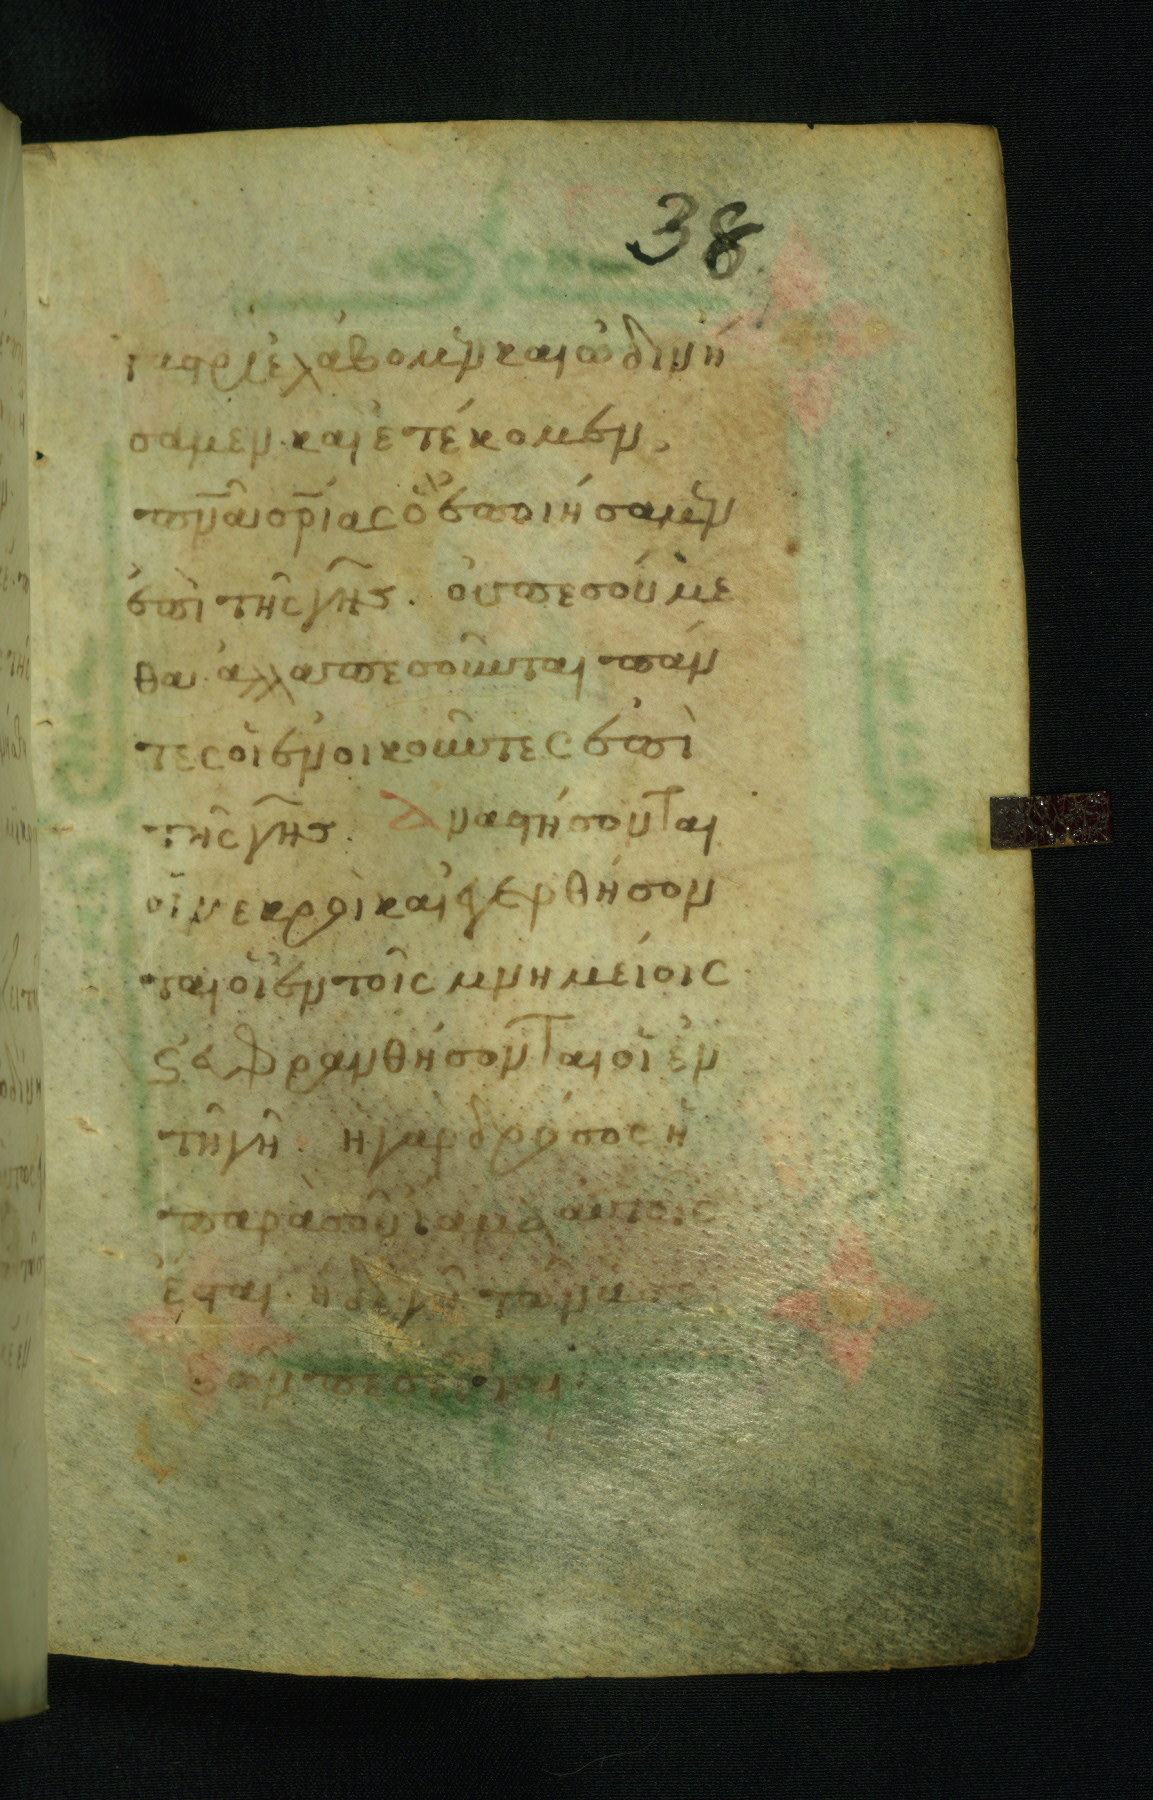 38
γαστρὶ ἐλάβομεν καὶ ὠδινή
σαμεν καὶ ἐτέκομεν,
πνα σριας σου ὃ ἐποιήσαμεν
ἐπὶ τῆς γῆς. οὐ πεσούμε
θα ἀλλὰ πεσοῦνται πάν
τες οἱ ἐνοικοῦντες ἐπὶ
τῆς γῆς. Ἀναστήσονται
οἱ νεκροὶ καὶ ἐγερθήσον
ται οἱ ἐν τοῖς μνημείοις
καὶ εὐφρανθήσονται οἱ ἐν
τῇ γῇ. ἡ γὰρ δρόσος ἡ
παρὰ σοῦ ἴαμα αὐτοῖς
ἐστὶν. ἡ δὲ γῆ τῶν ἀσε
βῶν πεσεῖται.